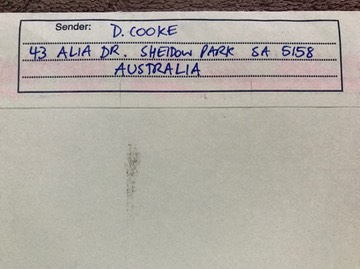 Sender: D. COOKE
43 ALIA DR. SHEIDOW PARK SA 5158
AUSTRALIA